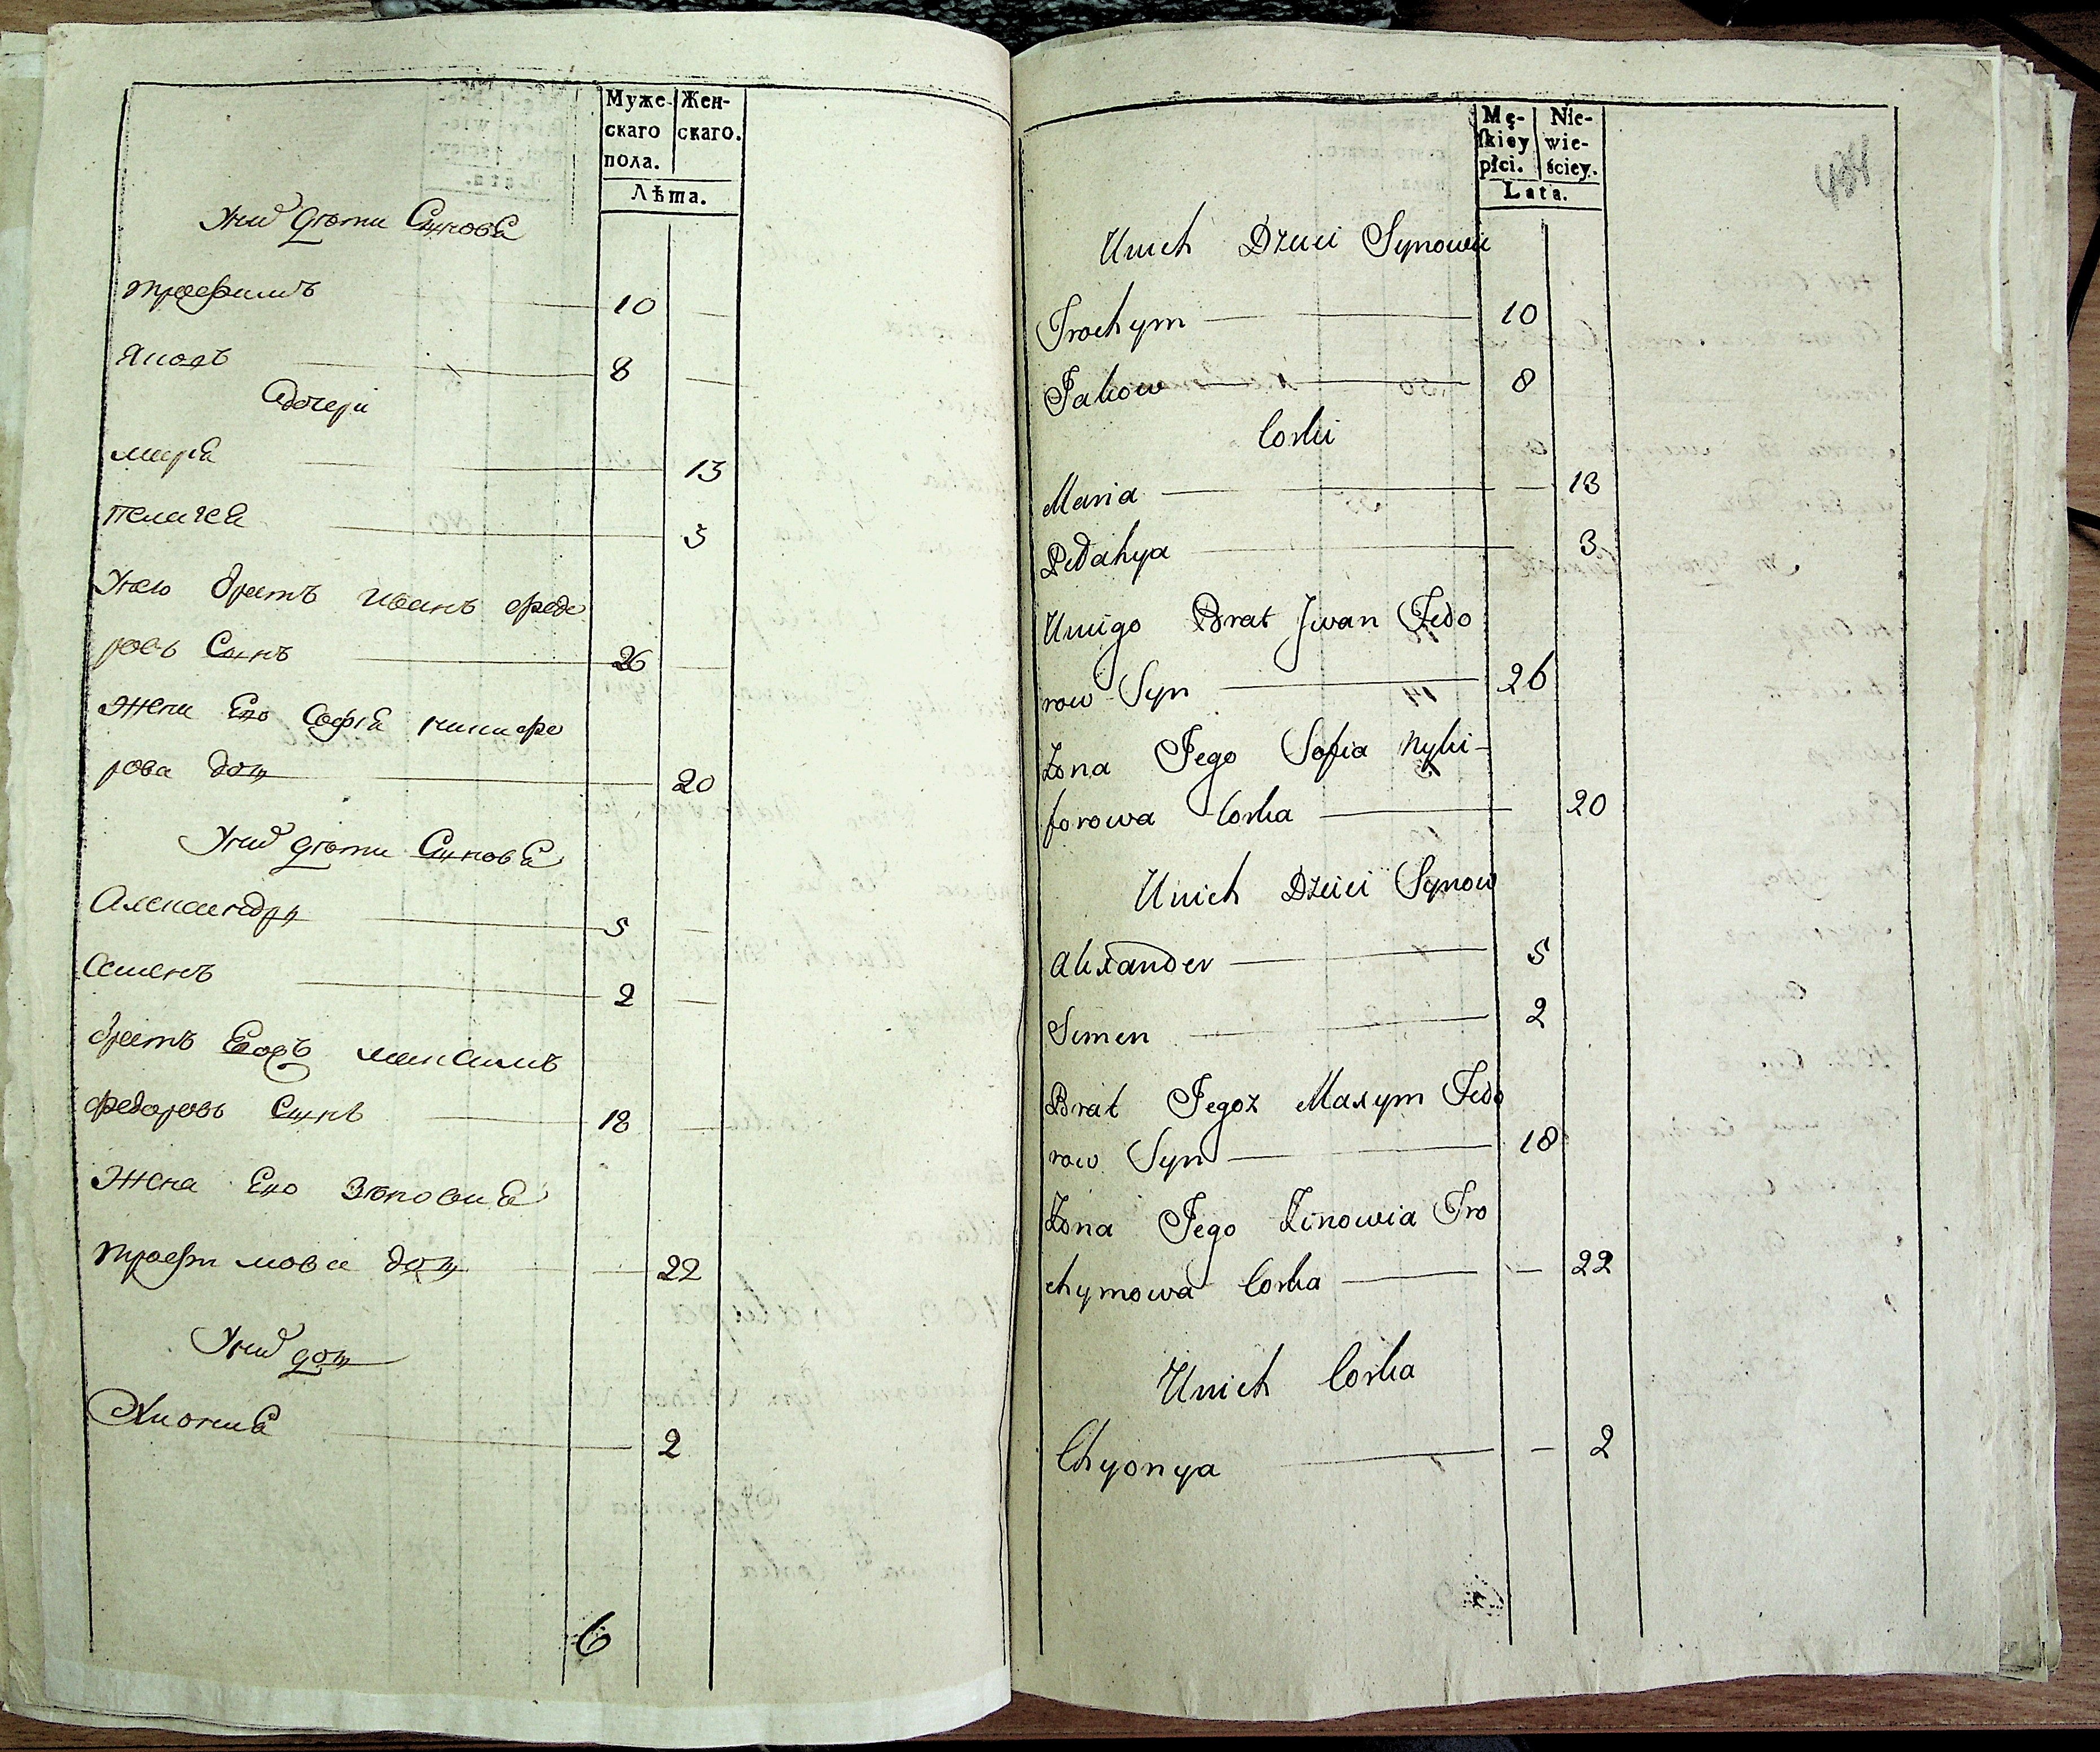 Муже-
скаго
пола.
Жен-
скаго.
Лѣта.
У них дѣти Сыновя
трофимъ 10
Яковъ 8
дочери
мария 13
пелагея 3
У него братъ иванъ федо
ровъ Сынъ 26
Жена Его София никифо
рова дощ 20
У них дѣти Сыновя
Александръ 5
Семенъ 2
братъ Егожъ максимъ
федоровъ Сынъ 18
Жена Его Зѣновия
трофимова дощ 22
У них дощ
Хиония 2
6
Mę-
skiey
płci.
Nie-
wie-
ściey.
Lata.
484
Unich Dzieci Synowie
Trochym 10
Jakow 8
Corki
Maria 13
Pelahya 3
Uniego Brat Jwan Fedo
row Syn 26
Zona Jego Sofia Nyki-
forowa Corka 20
Unich Dzieci Synow
Alexander 5
Semen 2
Brat Jegoz Maxym Fedo
row Syn 18
Zona Jego Zenowia Tro
chymowa Corka 22
Unich Corka
Chyonya 2